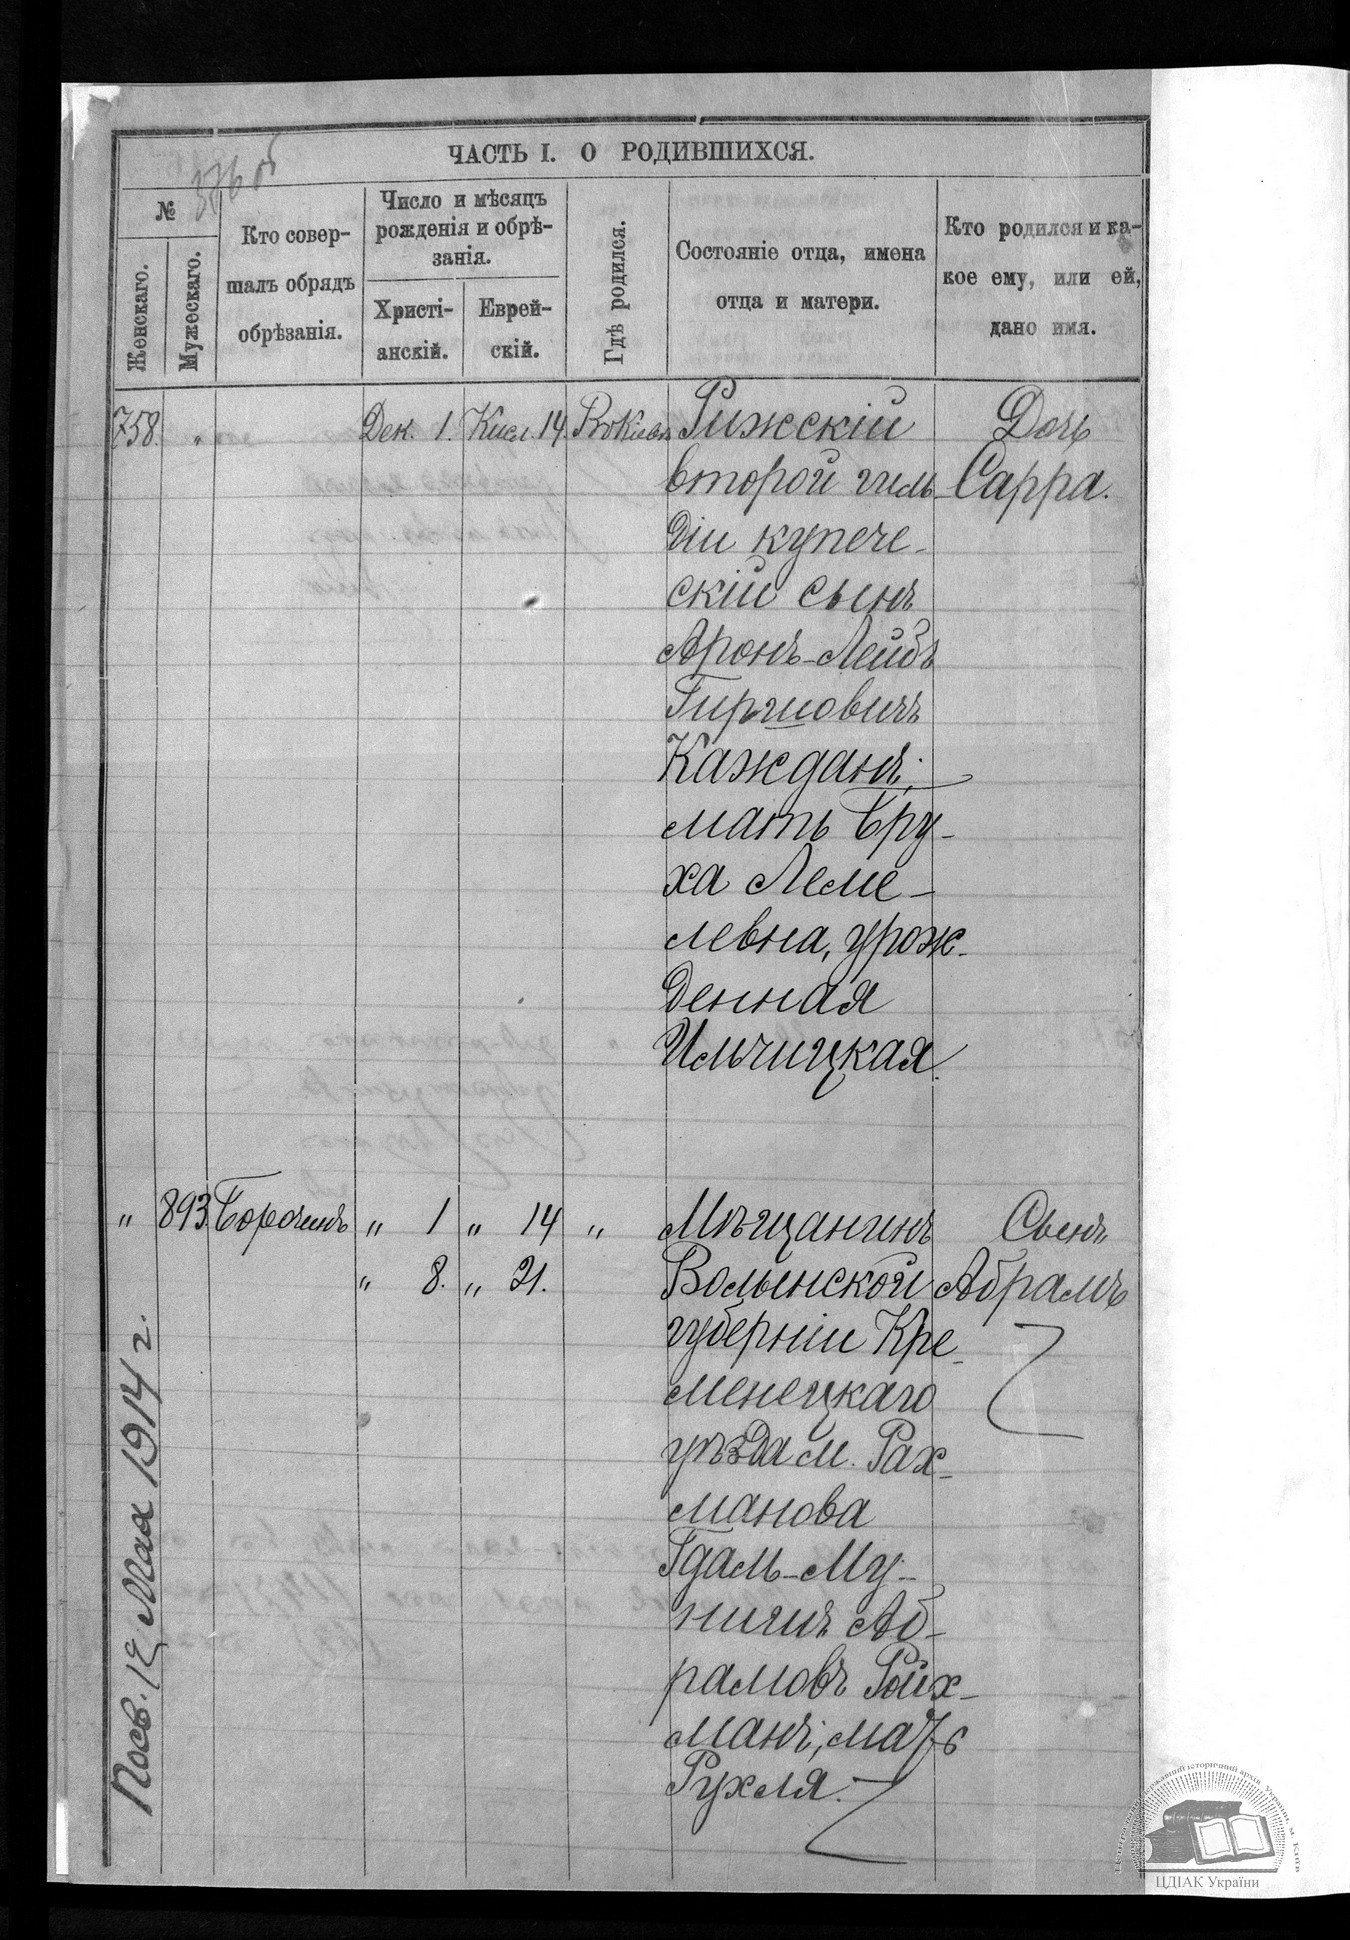 376 об
ЧАСТЬ I. О РОДИВШИХСЯ.
№
Женскаго.
Мужескаго.
Кто совер-
шалъ обрядъ
обрѣзанія.
Число и мѣсяцъ
рожденія и обрѣ-
занія.
Христі-
анскій.
Еврей-
скій.
Гдѣ родился.
Состояніе отца, имена
отца и матери.
Кто родился и ка-
кое ему, или ей,
дано имя.
758. „ Дек. 1. Кисл. 14. Въ Кіевѣ Рижскій Дочь
второй гиль- Сарра.
діи купече-
скій сынъ
Аронъ-Лейбъ
Гиршовичъ
Кажданъ;
мать Бру-
ха Леме-
левна, урож-
денная
Ильчицкая.
„ 893 „ 1 „ 14 „ Мѣщанинъ Сынъ
„ 8. „ 21. Волынской Абрамъ
губерніи Кре-
менецкаго
уѣзда м. Рах-
манова
Гдаль-Му-
нишъ Аб-
рамовъ Ройх-
манъ; мать
Рухля.
Посв. 12 Мая 1914 г.
Центральний державний історичний архів України, м. Київ
ЦДІАК України